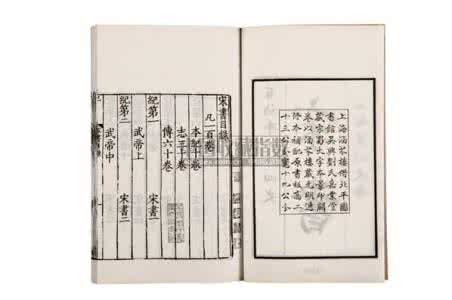 上海涵芬樓借北平圖
書館吳興劉氏嘉業堂
藏宋蜀大字本景印闕
卷以涵芬樓藏元明遞
修本補配原書板高二
十三公分寬十九公分
宋書目錄
凡一百卷
本紀十卷
志三十卷
傳六十卷
紀第一 宋書一
武帝上
紀第二 宋書二
武帝中